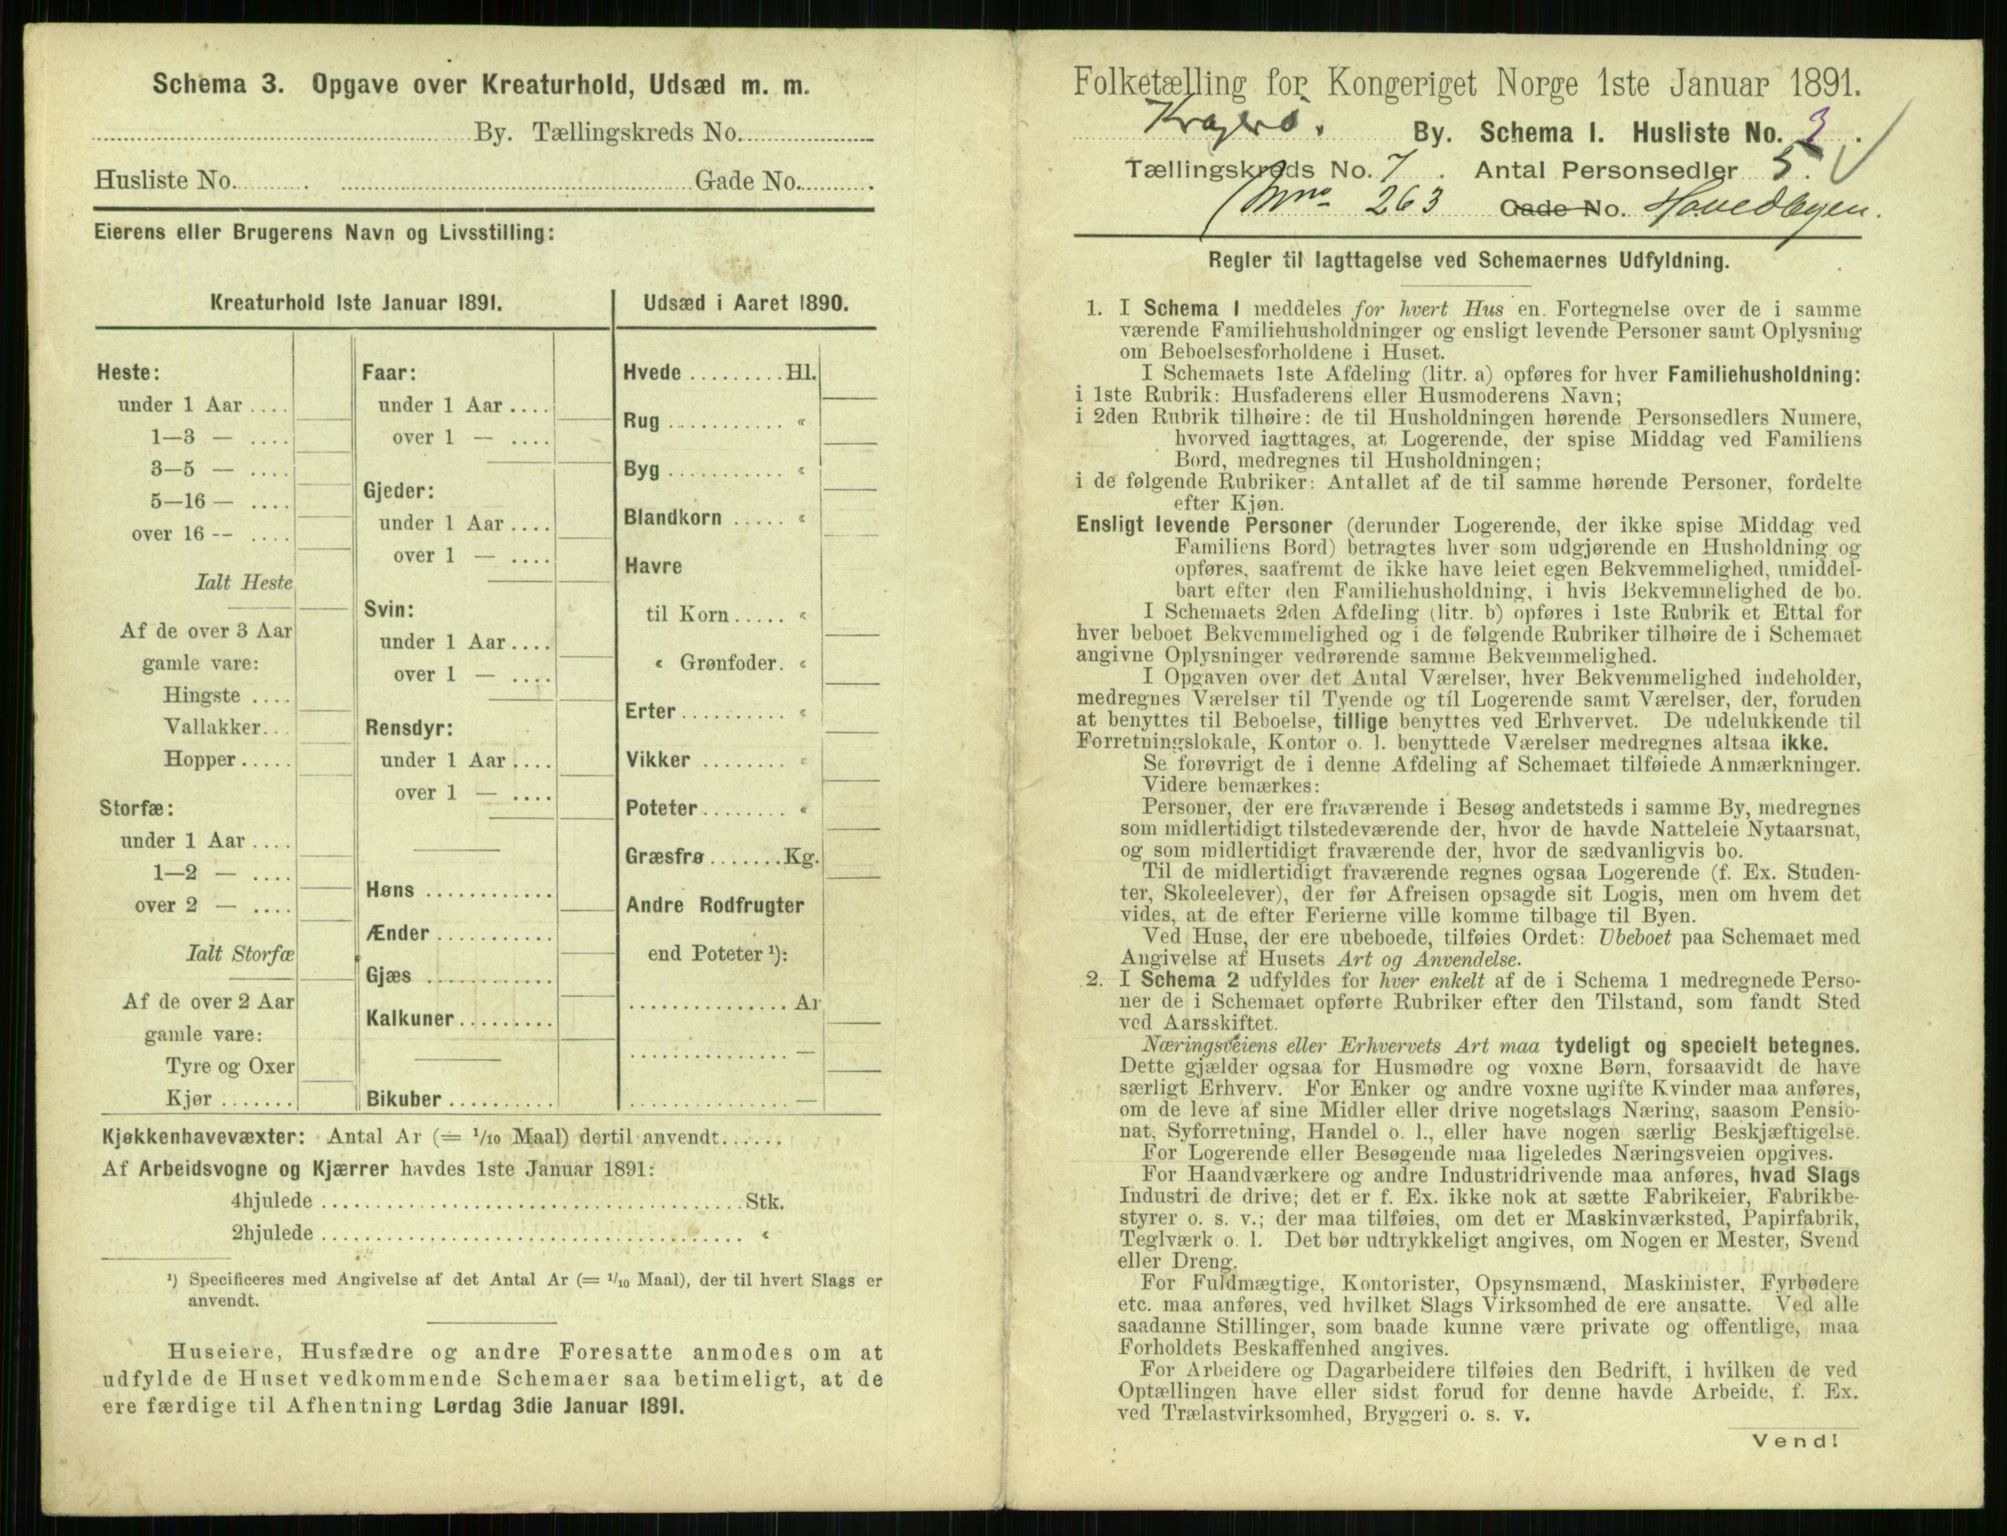 Schema 3. Opgave over Kreaturhold, Udsæd m. m.
By. Tællingskreds No.
Husliste No. Gade No.
Eierens eller Brugerens Navn og Livsstilling:
Kreaturhold 1ste Januar 1891.
Heste:
under 1 Aar ....
1—3 — ....
3—5 — ....
5—16 — ....
over 16 -- ....
Ialt Heste
Af de over 3 Aar
gamle vare:
Hingste ....
Vallakker...
Hopper.....
Storfæ:
under 1 Aar ....
1—2 — ....
over 2 — ....
Ialt Storfæ
Af de over 2 Aar
gamle vare:
Tyre og Oxer
Kjør .......
Faar:
under 1 Aar ....
over 1 — ....
Gjeder:
under 1 Aar ....
over 1 — ....
Svin:
under 1 Aar ....
over 1 — ....
Rensdyr:
under 1 Aar ....
over 1 — ....
Høns ............
Ænder ...........
Gjæs ............
Kalkuner.........
Bikuber ..........
Udsæd i Aaret 1890.
Hvede .........Hl.
Rug ........... «
Byg ........... «
Blandkorn ..... «
Havre
til Korn..... «
« Grønfoder. «
Erter.......... «
Vikker ........ «
Poteter........ «
Græsfrø.......Kg.
Andre Rodfrugter
end Poteter ¹):
............... Ar
............... —
............... —
Kjøkkenhavevæxter: Antal Ar (= 1/10 Maal) dertil anvendt......
Af Arbeidsvogne og Kjærrer havdes 1ste Januar 1891:
4hjulede ......................................Stk.
2hjulede ...................................... «
¹) Specificeres med Angivelse af det Antal Ar (= 1/10 Maal), der til hvert Slags er
anvendt.
Huseiere, Husfædre og andre Foresatte anmodes om at
udfylde de Huset vedkommende Schemaer saa betimeligt, at de
ere færdige til Afhentning Lørdag 3die Januar 1891.
Folketælling for Kongeriget Norge 1ste Januar 1891.
Kragerø. By. Schema 1. Husliste No. 3.
Tællingskreds No. 7. Antal Personsedler 5.
Mno 263 Gade No. Hovedbyen.
Regler til Iagttagelse ved Schemaernes Udfyldning.
1. I Schema 1 meddeles for hvert Hus en Fortegnelse over de i samme
værende Familiehusholdninger og ensligt levende Personer samt Oplysning
om Beboelsesforholdene i Huset.
I Schemaets 1ste Afdeling (litr. a) opføres for hver Familiehusholdning:
i 1ste Rubrik: Husfaderens eller Husmoderens Navn;
i 2den Rubrik tilhøire: de til Husholdningen hørende Personsedlers Numere,
hvorved iagttages, at Logerende, der spise Middag ved Familiens
Bord, medregnes til Husholdningen;
i de følgende Rubriker: Antallet af de til samme hørende Personer, fordelte
efter Kjøn.
Ensligt levende Personer (derunder Logerende, der ikke spise Middag ved
Familiens Bord) betragtes hver som udgjørende en Husholdning og
opføres, saafremt de ikke have leiet egen Bekvemmelighed, umiddel-
bart efter den Familiehusholdning, i hvis Bekvemmelighed de bo.
I Schemaets 2den Afdeling (litr. b) opføres i 1ste Rubrik et Ettal for
hver beboet Bekvemmelighed og i de følgende Rubriker tilhøire de i Schemaet
angivne Oplysninger vedrørende samme Bekvemmelighed.
I Opgaven over det Antal Værelser, hver Bekvemmelighed indeholder,
medregnes Værelser til Tyende og til Logerende samt Værelser, der, foruden
at benyttes til Beboelse, tillige benyttes ved Erhvervet. De udelukkende til
Forretningslokale, Kontor o. l. benyttede Værelser medregnes altsaa ikke.
Se forøvrigt de i denne Afdeling af Schemaet tilføiede Anmærkninger.
Videre bemærkes:
Personer, der ere fraværende i Besøg andetsteds i samme By, medregnes
som midlertidigt tilstedeværende der, hvor de havde Natteleie Nytaarsnat,
og som midlertidigt fraværende der, hvor de sædvanligvis bo.
Til de midlertidigt fraværende regnes ogsaa Logerende (f. Ex. Studen-
ter, Skoleelever), der før Afreisen opsagde sit Logis, men om hvem det
vides, at de efter Ferierne ville komme tilbage til Byen.
Ved Huse, der ere ubeboede, tilføies Ordet: Ubeboet paa Schemaet med
Angivelse af Husets Art og Anvendelse.
2. I Schema 2 udfyldes for hver enkelt af de i Schema 1 medregnede Perso-
ner de i Schemaet opførte Rubriker efter den Tilstand, som fandt Sted
ved Aarsskiftet.
Næringsveiens eller Erhvervets Art maa tydeligt og specielt betegnes.
Dette gjælder ogsaa for Husmødre og voxne Børn, forsaavidt de have
særligt Erhverv. For Enker og andre voxne ugifte Kvinder maa anføres,
om de leve af sine Midler eller drive nogetslags Næring, saasom Pensio-
nat, Syforretning, Handel o. l., eller have nogen særlig Beskjæftigelse.
For Logerende eller Besøgende maa ligeledes Næringsveien opgives.
For Haandværkere og andre Industridrivende maa anføres, hvad Slags
Industri de drive; det er f. Ex. ikke nok at sætte Fabrikeier, Fabrikbe-
styrer o. s. v.; der maa tilføies, om det er Maskinværksted, Papirfabrik,
Teglværk o. l. Det bør udtrykkeligt angives, om Nogen er Mester, Svend
eller Dreng.
For Fuldmægtige, Kontorister, Opsynsmænd, Maskinister, Fyrbødere
etc. maa anføres, ved hvilket Slags Virksomhed de ere ansatte. Ved alle
saadanne Stillinger, som baade kunne være private og offentlige, maa
Forholdets Beskaffenhed angives.
For Arbeidere og Dagarbeidere tilføies den Bedrift, i hvilken de ved
Optællingen have eller sidst forud for denne havde Arbeide, f. Ex.
ved Trælastvirksomhed, Bryggeri o. s. v.
Vend!